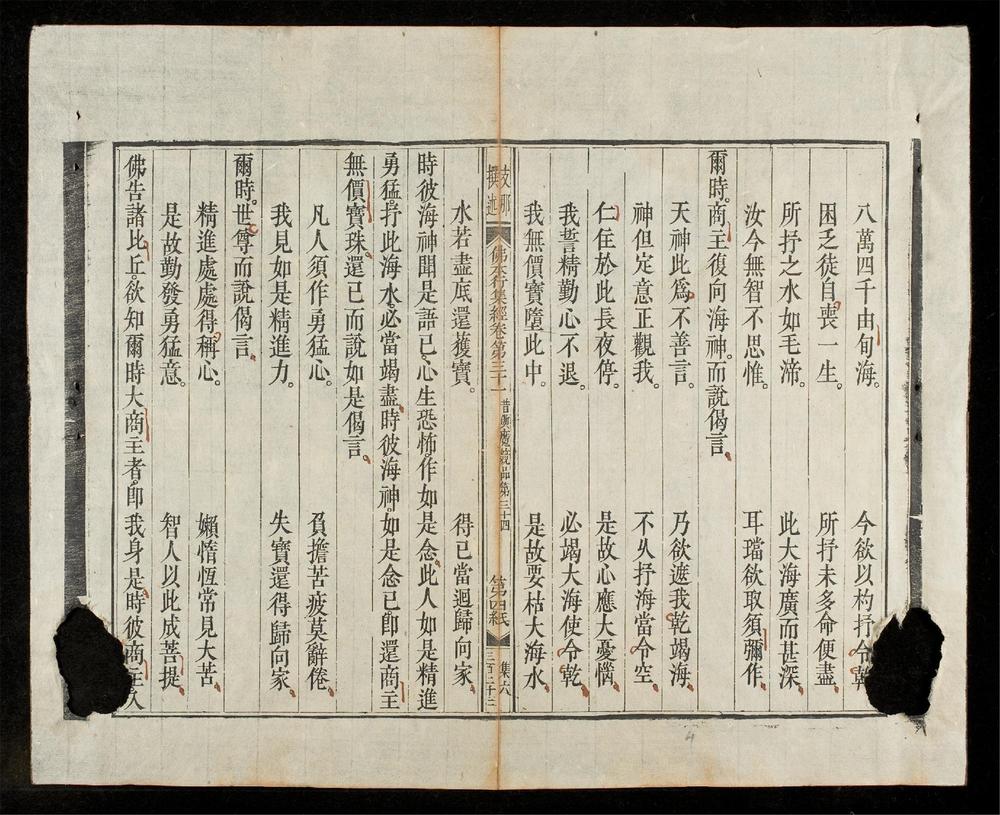 八萬四千由旬海。　今欲以杓抒令乾
困乏徒自喪一生。　所抒未多命便盡
所抒之水如毛渧。　此大海廣而甚深
汝今無智不思惟。　耳璫欲取須彌作
爾時。商主復向海神。而說偈言。
天神此為不善言。　乃欲遮我乾竭海
神但定意正觀我。　不久抒海當令空
仁住於此長夜停。　是故心應大憂惱
我誓精勤心不退。　必竭大海使令乾
我無價寶墮此中。　是故要枯大海水
水若盡底還獲寶。　得已當迴歸向家
支那撰述
佛本行集經卷第三十一　昔與魔競品第三十四　第四紙　集六
三百二十三
時彼海神聞是語已。心生恐怖。作如是念。此人如是精進
勇猛。抒此海水。必當竭盡。時彼海神。如是念已。即還商主
無價寶珠。還已而說如是偈言。
凡人須作勇猛心。　負擔苦疲莫辭倦
我見如是精進力。　失寶還得歸向家
爾時。世尊而說偈言。
精進處處得稱心。　嬾惰恆常見大苦
是故勤發勇猛意。　智人以此成菩提
佛告諸比丘。欲知爾時大商主者。即我身是。時彼商主入
4